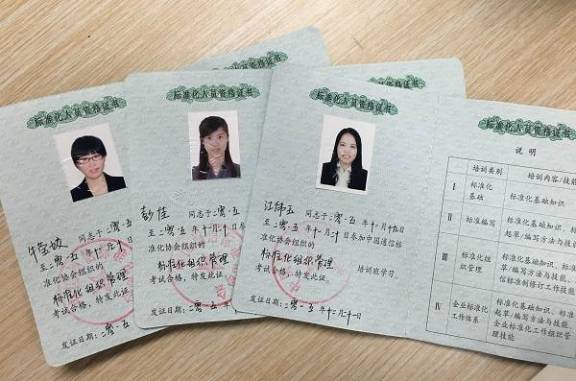 标准化人员资格证书
同志于二〇一五
准化协会组织的
标准化组织管理
考试合格,特发此证。
发证日期:二〇一五
标准化人员资格证书
彭佳 同志于二〇一五
准化协会组织的
标准化组织管理
考试合格,特发此证。
发证日期:二〇一五
标准化人员资格证书
同志于二〇一五年十一月十五日
至二〇一五年十一月二十日参加中国通信标
准化协会组织的
标准化组织管理 培训班学习,
考试合格,特发此证。
发证日期:二〇一五年十一月二十一日
标准化人员资格证书
说明
培训类别 培训内容/技能
I 标准化基础 标准化基础知识
II 标准编写 标准化基础知识、
起草/编写方法与技
III 标准化组织管理 标准化基础知识、标
起草/编写方法与技能、
信标准制修订工作技能
IV 企业标准化工作体系 标准化基础知识、标
起草/编写方法与技能、
企业标准化工作组织管
理技能